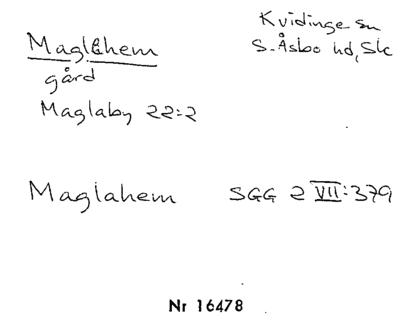 Maglahem
Kvidinge sn
S. Åsbo hd, Sk
gård
Maglaby 22:2
Maglahem SGG 2 VII:379
Nr 16478